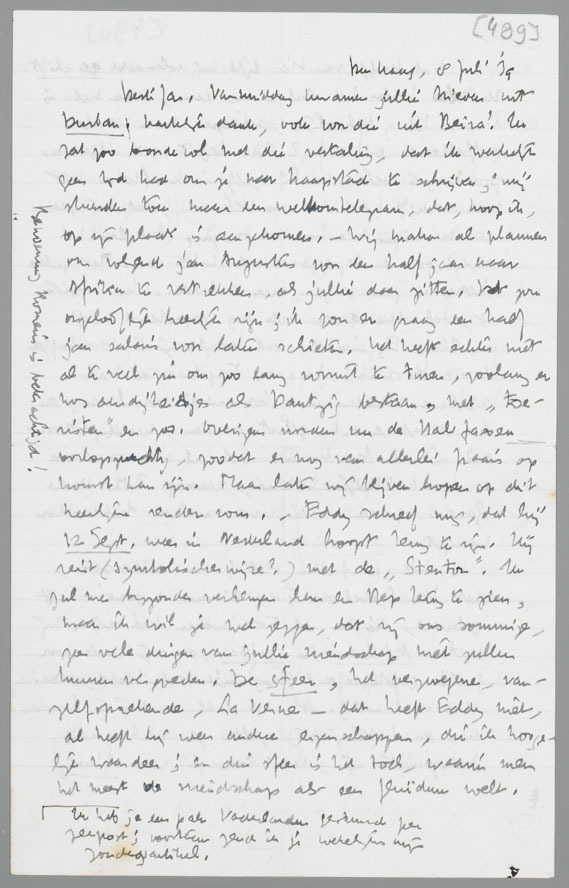 [489]
den Haag, 8 Juli '39
Beste Jan, Vanmiddag kwamen jullie brieven uit
Durban; hartelijk dank, ook voor die uit Beira! Ik
zat zoo vol met die vertaling, dat ik werkelijk
geen tijd had om je naar Kaapstad te schrijven; wij
stuurden toen maar een welkomtelegram, dat, hoop ik,
op zijn plaats is aangekomen. – Wij maken al plannen
om volgend jaar Augustus voor een half jaar naar
Afrika te vertrekken, als jullie daar zitten. Het zou
ongelooflijk heerlijk zijn; ik zou er graag een half
jaar salaris voor laten schieten. Het heeft echter niet
al te veel zin om zoo lang vooruit te zien, zoolang er
nog als Dantzig bestaan, met „Toe-
risten" en zoo. Overigens worden nu de Hal
, zoodat er nog van allerlei paais op
komst kan zijn. Maar laten wij blijven hopen op dit
heerlijke rendez-vous. – Eddy schreef mij, dat hij
12 Sept. weer in Nederland hoopt terug te zijn. Hij
reist (symbolischerwijze?) met de „Stentor". Ik
zal me bijzonder verheugen hem en Bep terug te zien,
maar ik wil je wel zeggen, dat zij ons sommige,
zeer vele dingen van jullie vriendschap niet zullen
kunnen vergoeden. De sfeer, het verzwegene, van-
zelfsprekende, La Verne – dat heeft Eddy niet,
al heeft hij weer andere eigenschappen, die ik hooge-
lijk waardeer; en die sfeer is het toch, waarin men
het meest de vriendschap als een fluïdum voelt.
Ik heb je een pak Vaderlanden gestuurd per
zeepost; voortaan zend ik je wekelijks mijn
zondagsartikel.
Benoeming Romein is bekrachtigd!